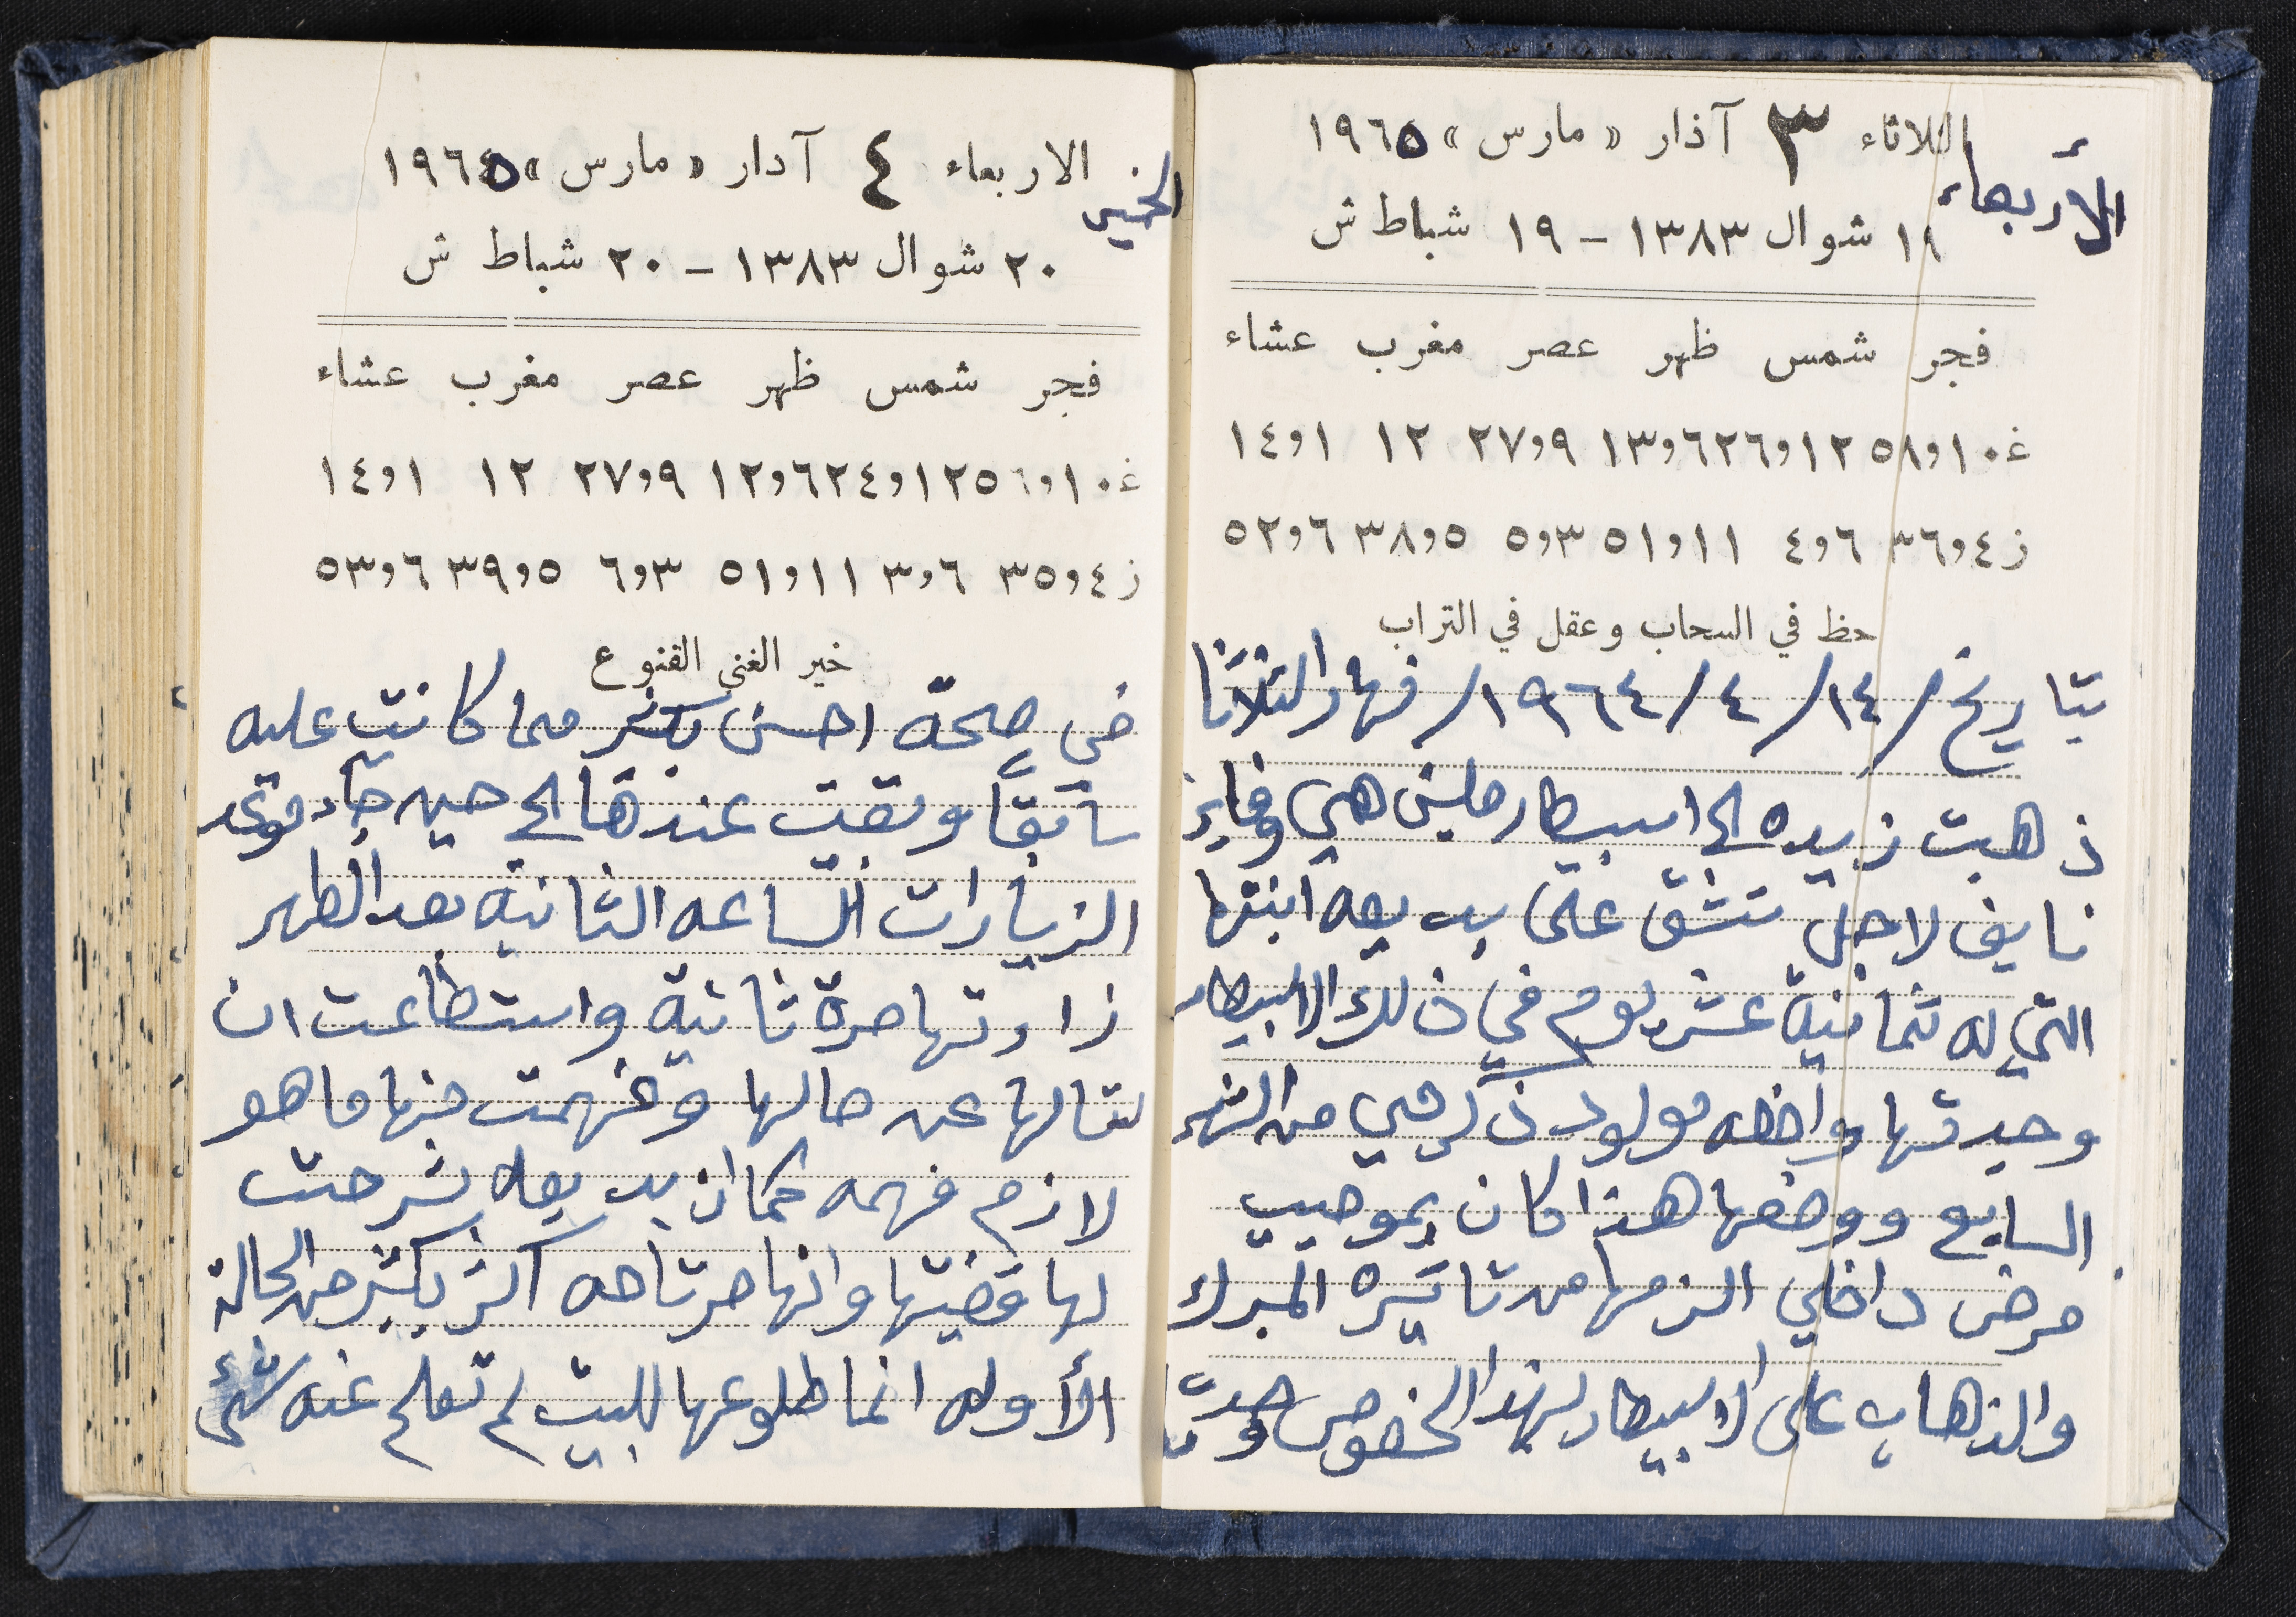 الثلاثاء ٣ آذار « مارس » ١٩٦٥
الأربعاء
١٩ شوال ١٣٨٣ - ١٩ شباط ش
فجر شمس ظهر عصر مغرب عشاء
غ ١٠و٥٨ ١٢و٢٦ ٦و١٣ ٩و٢٧ ١٢ ١و١٤
ز ٤و٣٦ ٦و٤ ١١و٥١ ٣و٥ ٥و٣٨ ٦و٥٢
حظ في السحاب وعقل في التراب
بتاريخ /١٤/ ٤/ ١٩٦٤/ نهار الثلاثا
ذهبت زبيده الى اسبيطار ملس هي وفايز
نايف لاجل تشق على بديعه ابنتها
التي له ثمانية عشر يوم في ذلك الاسبيطار
وحيدتها واضعه مولود ذكر من الشهر
السابع ووضعها هذا كان بموجب
مرض داخلي الزمها من تاتيره المبرك
والذهاب على الاسبيطار لهذا الخصوص وجدتها
الاربعاء ٤ آدار « مارس » ١٩٦٥
الخميس
٢٠ شوال ١٣٨٣ - ٢٠ شباط ش
فجر شمس ظهر عصر مغرب عشاء
غ ١٠و٥٦ ١٢و٢٤ ٦و١٢ ٩و٢٧ ١٢ ١و١٤
ز ٤و٣٥ ٦و٣ ١١و٥١ ٣و٦ ٥و٣٩ ٦و٥٣
خير الغنى القنوع
في صحة احسن بكثير مما كانت عليه
سابقاً وبقيت عندها الى حين جاء موعد
الزيارات الساعه الثانية بعد الظهر
زاروتها مرة ثانية واستطاعت ان
تسالها عن حالها وفهمت منها ما هو
لازم فهمه كما ان بديعه شرحت
لها قضيتها وانها مرتاحه اكثر بكثير من الحالة
الأوله انما طلوعها للبيت لم تعلم عنه شئ